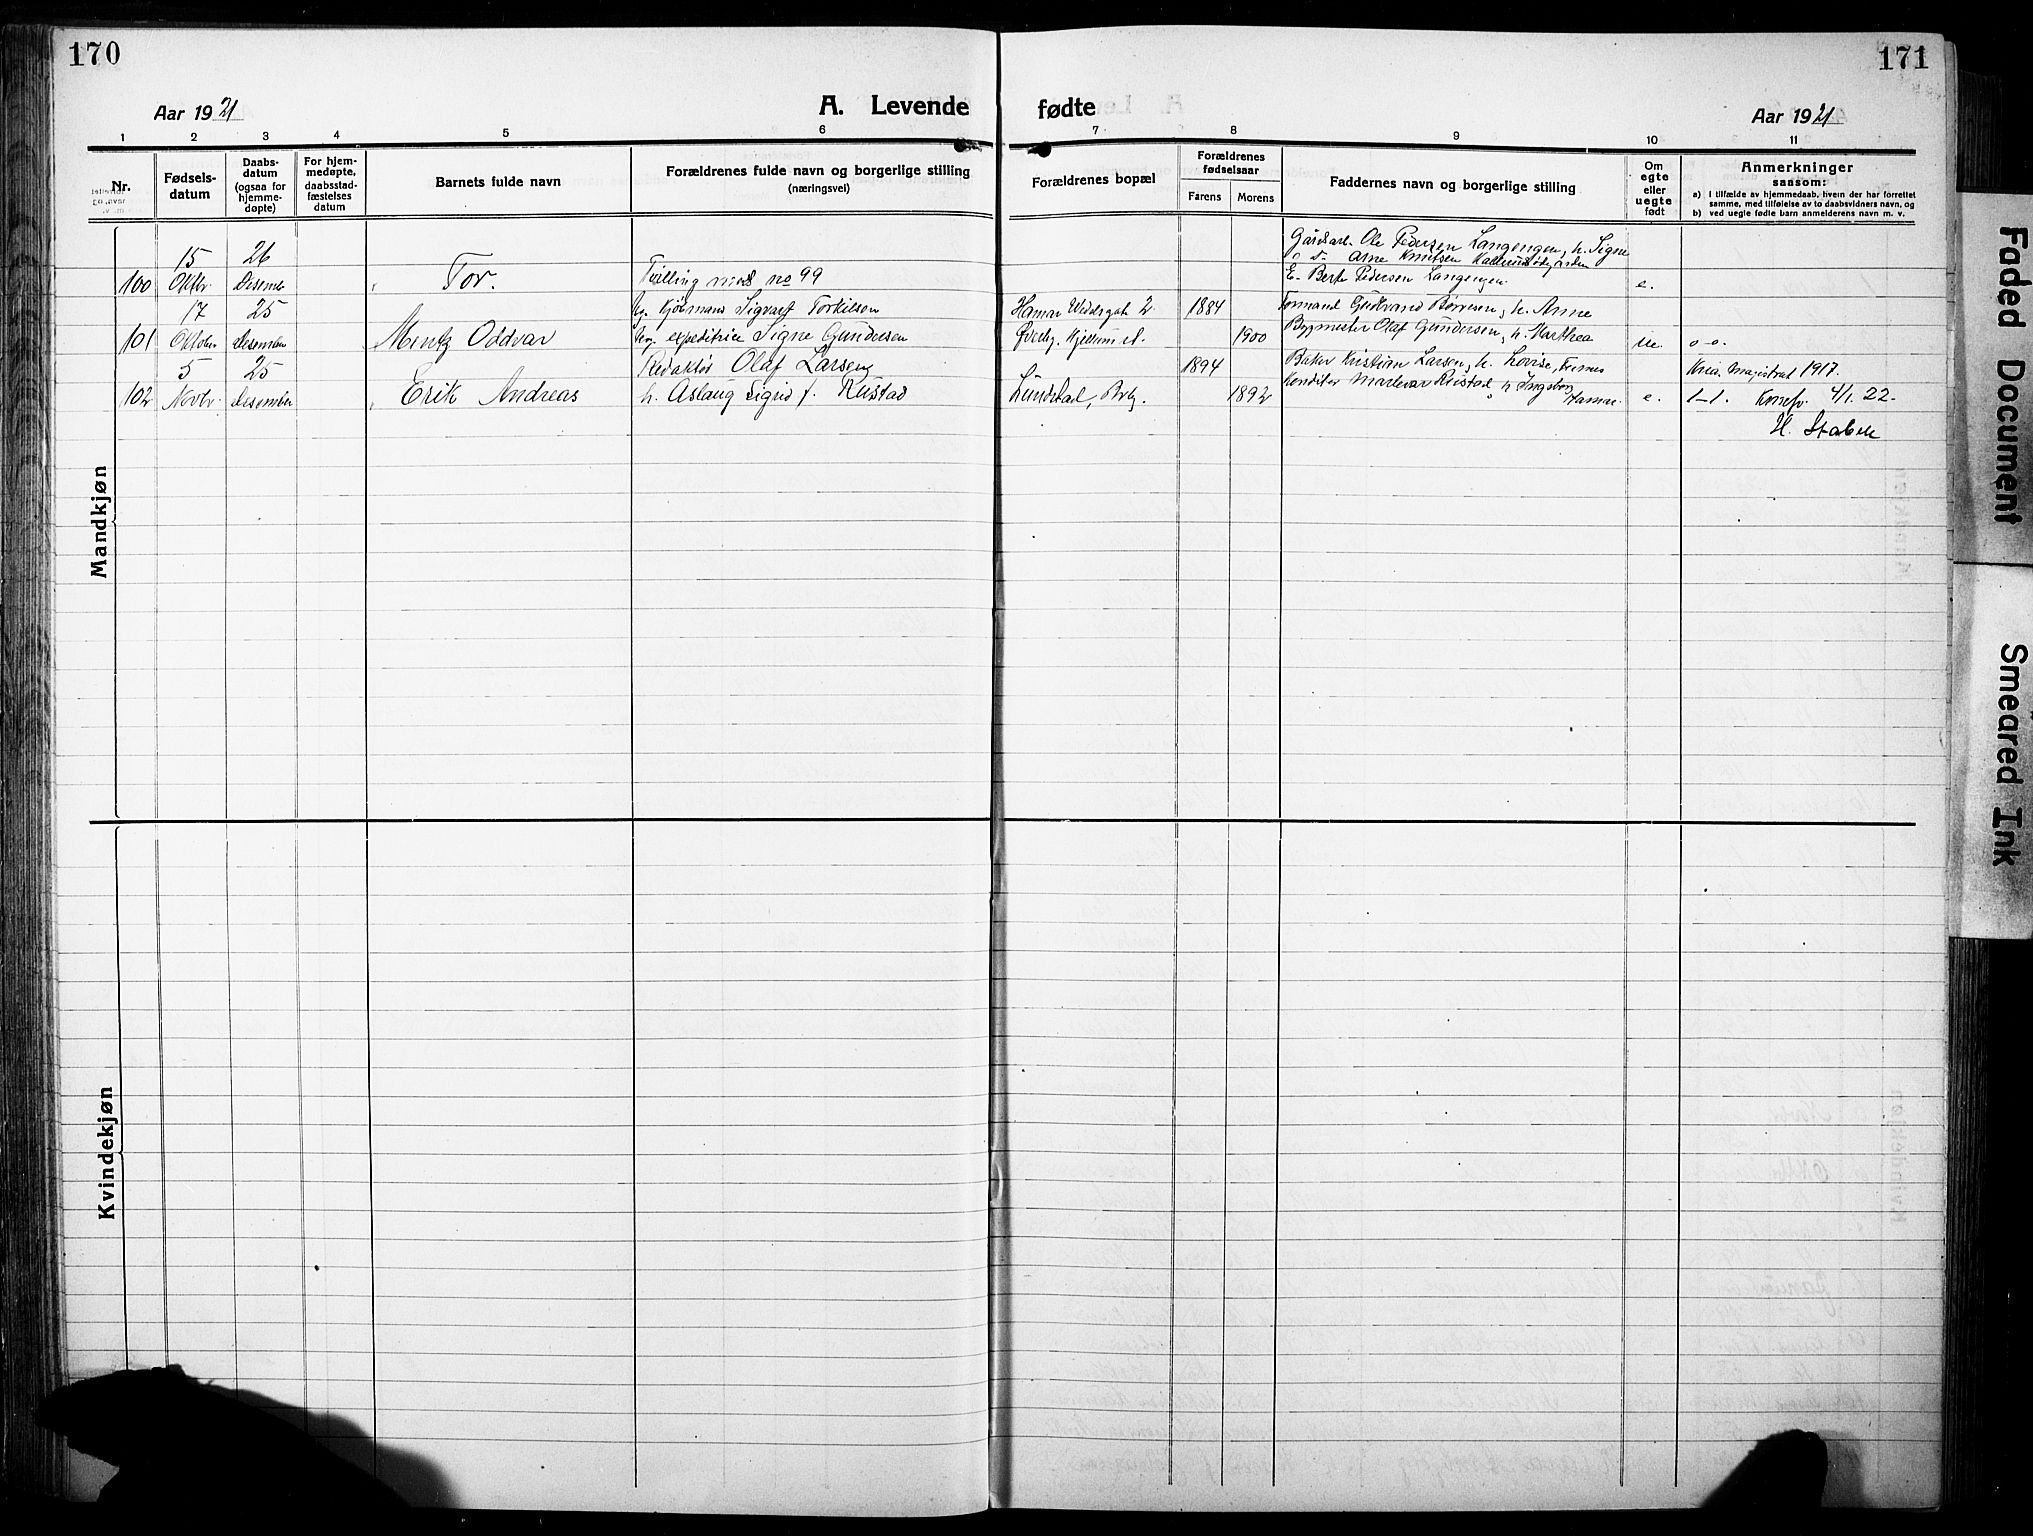 170
171
Aar 1921
A. Levende
fødte
Aar 1921
1 2 3 4 5 6 7 8 9 10 11
Nr.
Fødsels-
datum
Daabs-
datum
(ogsaa for
hjemme-
døpte)
For hjem-
medøpte,
daabsstad-
fæstelses
datum
Barnets fulde navn
Forældrenes fulde navn og borgerlige stilling
(næringsvei)
Forældrenes bopæl
Forældrenes
fødselsaar
Farens
Morens
Faddernes navn og borgerlige stilling
Om
egte
eller
uegte
født
Anmerkninger
saasom:
a) I tilfælde av hjemmedaab, hvem der har forrettet
samme, med tilføielse av to daabsvidners navn, og
b) ved uegte fødte barn anmelderens navn m. v.
Mandkjøn
Gårdsarb. Ole Pedersen Langengen, h. Signe
15 26
Arne Knutsen
100 Oktbr. Desember Tor. Tvilling med no 99
E. Berte Pedersen Langengen. e.
17 25 Ug. Kjøbmann Sigvart Torkilsen Hamar 2 1884 Formand Gudbrand Børresen, h. Anne
101 Oktober Desember Mentz Oddvar Pig. expeditrice Signe Gundersen 1900 Bygmester Olaf Gundersen, h. Marthea ue. o-o.
5 25 Redaktør Olaf Larsen 1894 Baker Kristian Larsen, h. Lovise, Kria. magistrat 1917.
102 Novbr. Desember Erik Andreas h. Aslaug Sigrid f. Rustad Lundstad, 1892 Konditor Rustad h Ingeborg Hamar. e. 1-1. 4/1. 22.
H. Stabell
Kvindekjøn
Faded Document
Smeared Ink